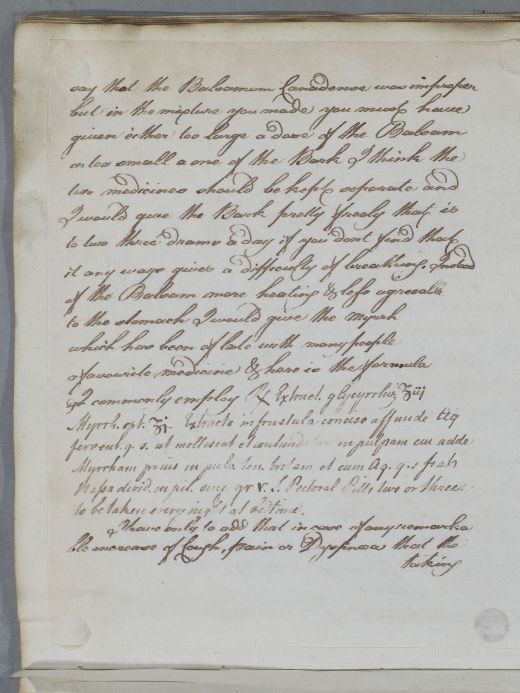 say that the Balsamum Canadense was improper
but in the mixture you made you must have
given either too large a dose of the Balsam
or too small a one of the Bark I think the
two medicines should be kept separate and
I would give the Bark pretty freely that is
to two three drams a day if you dont find that
it any ways gives a difficulty of breathing. Instead
of the Balsam more heating & less agreeable
to the stomach I would give the Myrrh
which has been of late with many people
a favourite medicine & here is the formula
I commonly employ ℞ Extract. glycyrrhiz ʒiij
Myrrh. opt. ʒj. Extracto in frustula conciso affunde Aq
fervent. q. s. ut mollescat et contundatur in pulpam cui adde
Myrrham prius in pulv. ten. tritam et cum Aq. q. s fiat
Massa divid. in pil. sing. gr V. S. Pectoral Pills two or three
to be taken every night at bedtime.
I have only to add that in case of any remarka
ble increase of Cough, pain or Dyspnoea that the
taking